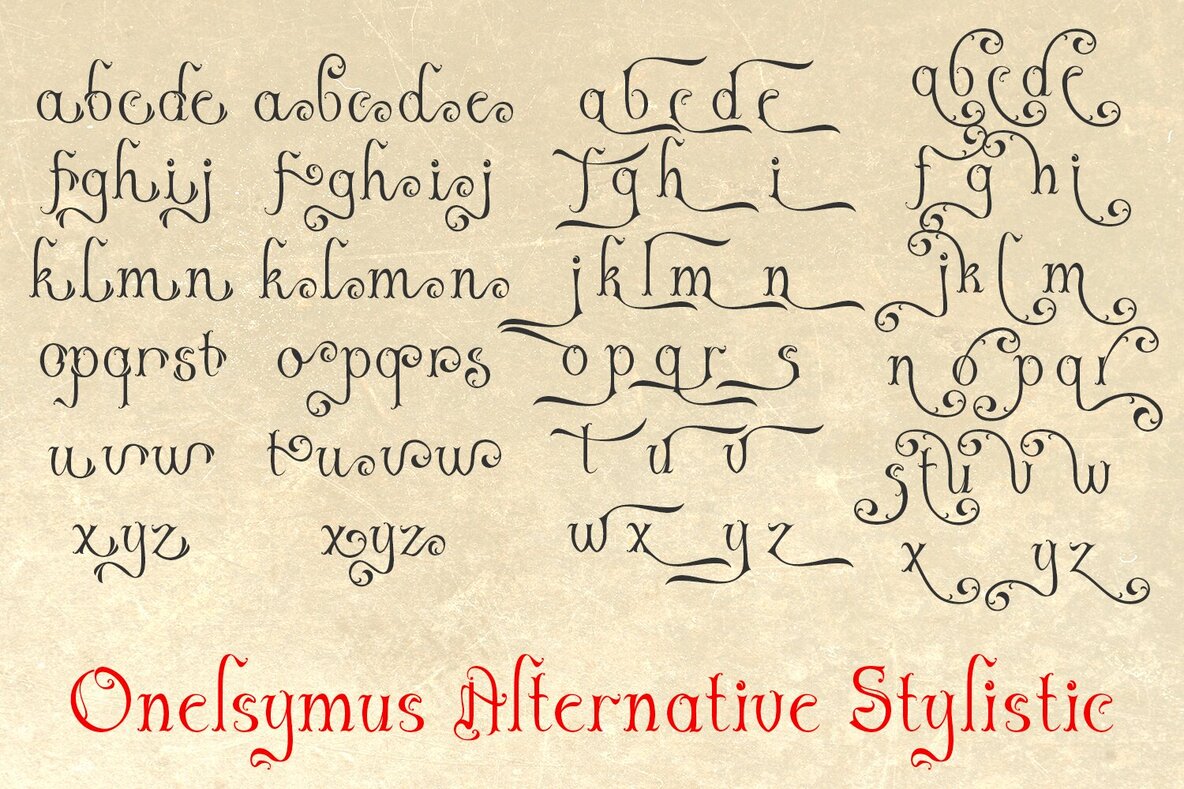 abcde
fghij
klmn
opqrst
uvw
xyz
abcde
fghij
klmn
opqrs
tuvw
xyz
abcde
fgh i
jklm n
opqr s
tuv
wx yz
abcde
fghi
jklm
nopqr
stuvw
x yz
Onelsymus Alternative Stylistic